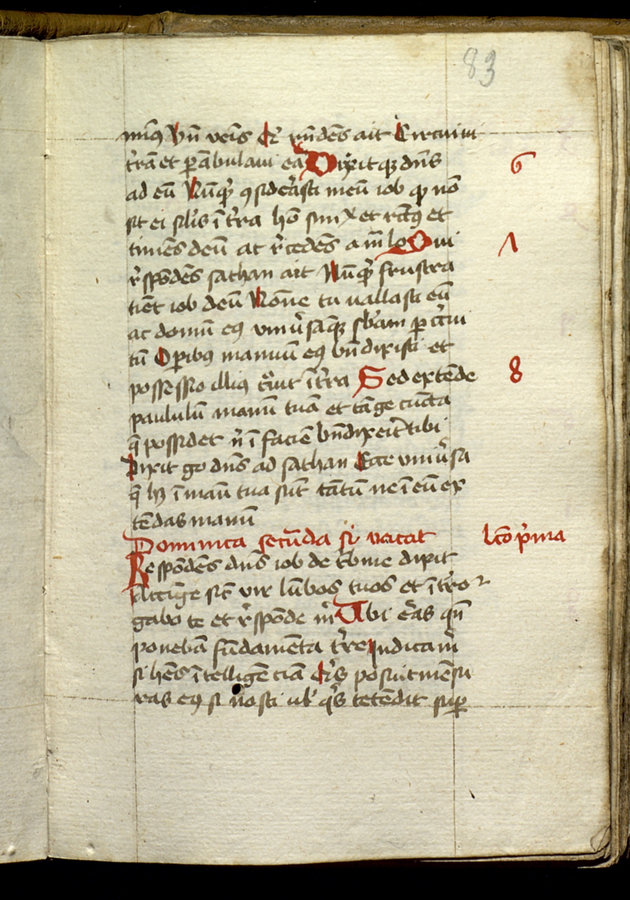 83
minus Vn̄ venis Et rn̄dens ait Circuiui
t̄ram et ꝑambulaui eā Dixitqꝫ dn̄s 6
ad eū Nūqͥd ꝯsid̓asti meū iob qͥ nō
sit ei sil̓is ī t̓ra hō simx et rectꝯ et
timēs deū ac r̓cedēs a mͣlo Cui 7
r̓spōdēs sathan ait Nūqͥd frustra
timet iob deū Nōne tu vallasti eū
ac domū eiꝯ vniu̓sāqꝫ sb̄am ꝑ circui
tū Oꝑibꝯ manuum eiꝯ bn̄dixisti et
possessio illiꝯ cͤuit ī t̓ra Sed extēde 8
paululū manū tuā et tāge cūcta
q̄ possidet n̄ ī faciē bn̄dixerit tibi
Dixit g̊ dn̄s ad sathan Ecce vniu̓sa
q̄ hꝫ ī manu tua sūt tātū ne ī eū ex
tēdas manū
Dominica secūda si vacat lc̄o pͥma
Respōdēs dn̄s iob de t̓bine dixit
Accīge sic̄ vir lūbos tuos et īt̓ro
gabo te et r̓spōde mͥ Vbi eras qn̄
ponebā fūdamēta t̓re Indica mͥ
si hēs ītelligēciā Qͥs posuit mēsu
ras eiꝯ si nosti ul̓ qͥs tetēdit suꝑ